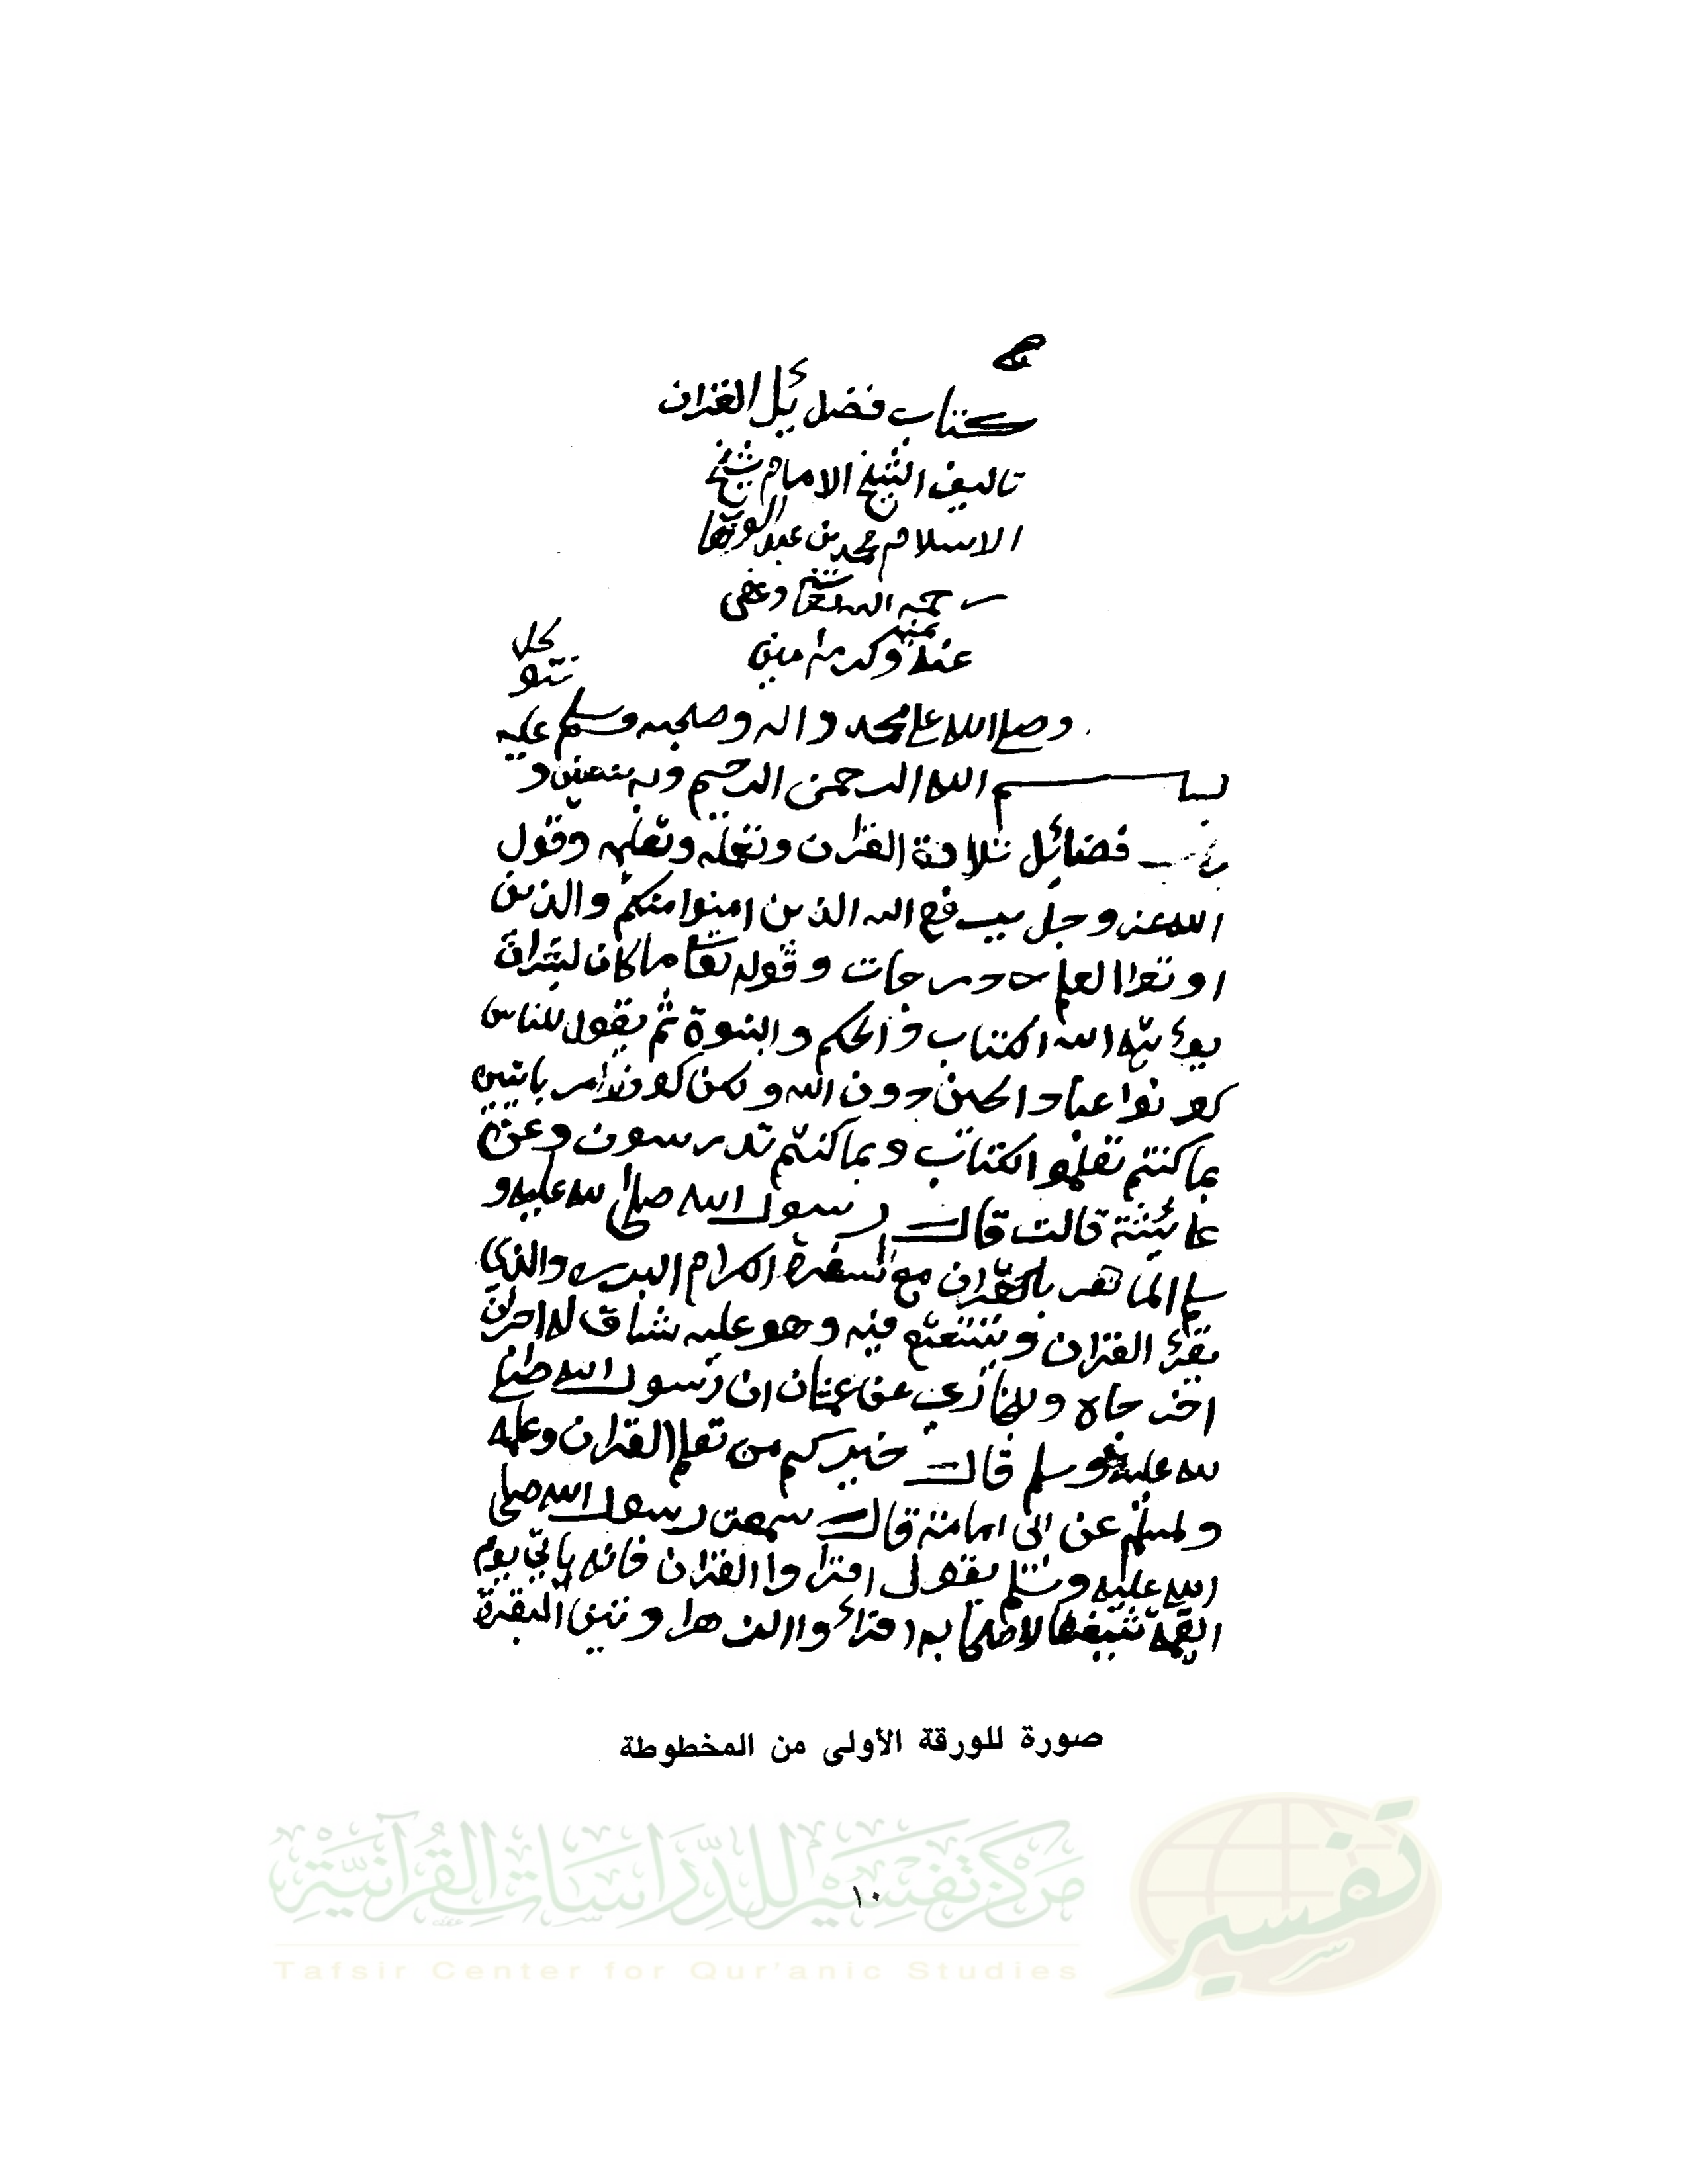 كتاب فضائل القران
تاليف الشيخ الامام شيخ
الاسلام محمد بن عبد الوهاب
رحمه الله تعالى وعفى
عنه بمنه وكرمه امين
نتوكل
وصلى الله على محمد واله وصحبه وسلم عليه
بسم الله الرحمن الرحيم وبه نستعين و
باب فضائل تلاوة القران وتعلمه وتعليمه وقول
الله عز وجل يرفع الله الذين امنوا منكم والذين
اوتوا العلم درجات وقوله تعا ما كان لبشر ان
يؤتيه الله الكتاب والحكم والنبوة ثم يقول للناس
كونوا عبادا لي من دون الله ولكن كونوا ربانيين
بما كنتم تعلمو الكتاب وبما كنتم تدرسون وعن
عائشة قالت قال رسول الله صلى الله عليه و
سلم الماهر بالقران مع السفرة الكرام البرره والذي
يقرٔ القران ويتتعتع فيه وهو عليه شاق له اجران
اخرجاه وللبخاري عن عثمان ان رسول الله صلى
لله عليه وسلم قال خيركم من تعلم القران وعلمه
ولمسلم عن ابي امامة قال سمعت رسول الله صلى
الله عليه وسلم يقول اقراوا القران فانه ياتي يوم
القيمة شفيعا لاصحابه اقرأوا الزهراوين البقرة
صورة للورقة الأولى من المخطوطة
مركز تفسير للدراسات القرآنية
تفسير
١٠
Tafsir Center for Qur'anic Studies